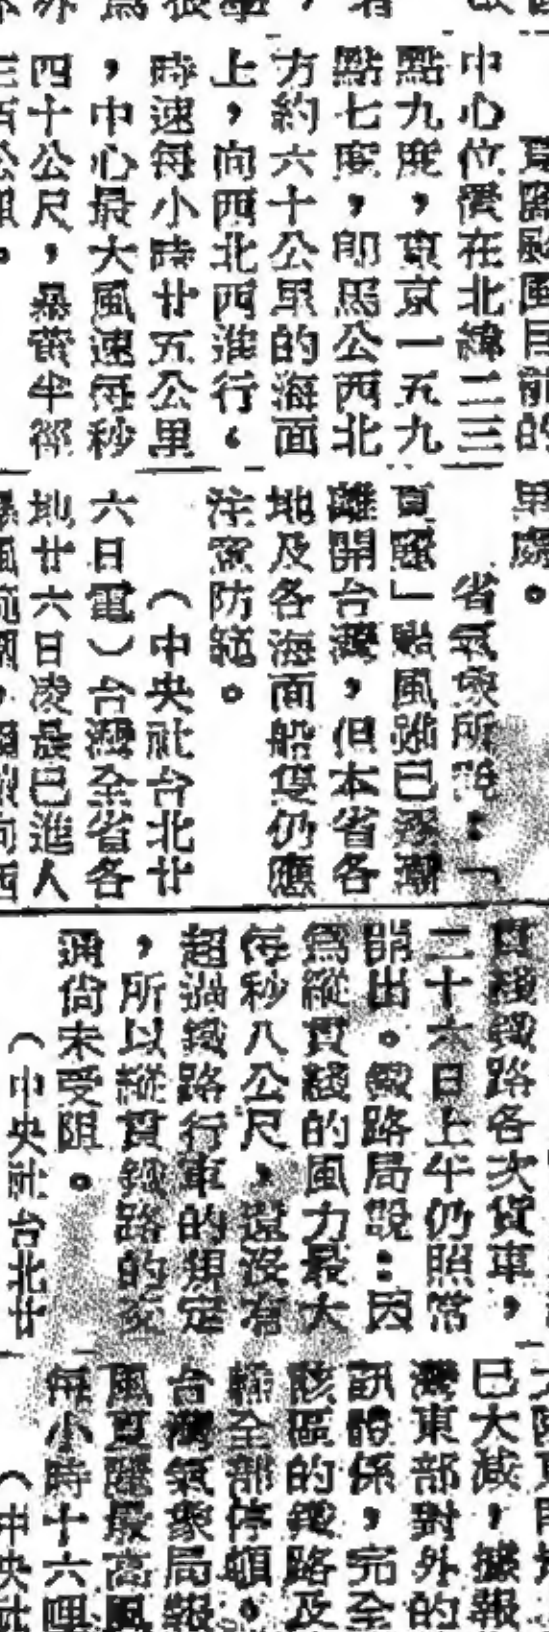 颱風目前的
中心位置在北緯二三
點九度，東京一五九
點七度，即馬公西北
方約六十公里的海面
上，向西北西進行。
時速每小時廿五公里
，中心最大風速每秒
四十公尺，暴風半徑
里處。
省氣象所說：「
夏颱」颱風雖已逐漸
離開台灣，但本省各
地及各海面船隻仍應
注意防範。
（中央社台北廿
六日電）台灣全省各
地廿六日凌晨已進入
貫綫鐵路各次貨車，
二十六日上午仍照常
開出。鐵路局說：因
為縱貫綫的風力最大
每秒八公尺，還沒有
超過鐵路行車的規定
，所以縱貫鐵路的交
通尚未受阻。
（中央社台北廿
已大減，據報
灣東部對外的
訊關係，完全
該區的鐵路及
輸全部停頓。
台灣氣象局報
風夏颱最高風
每小時十六哩
（中央社